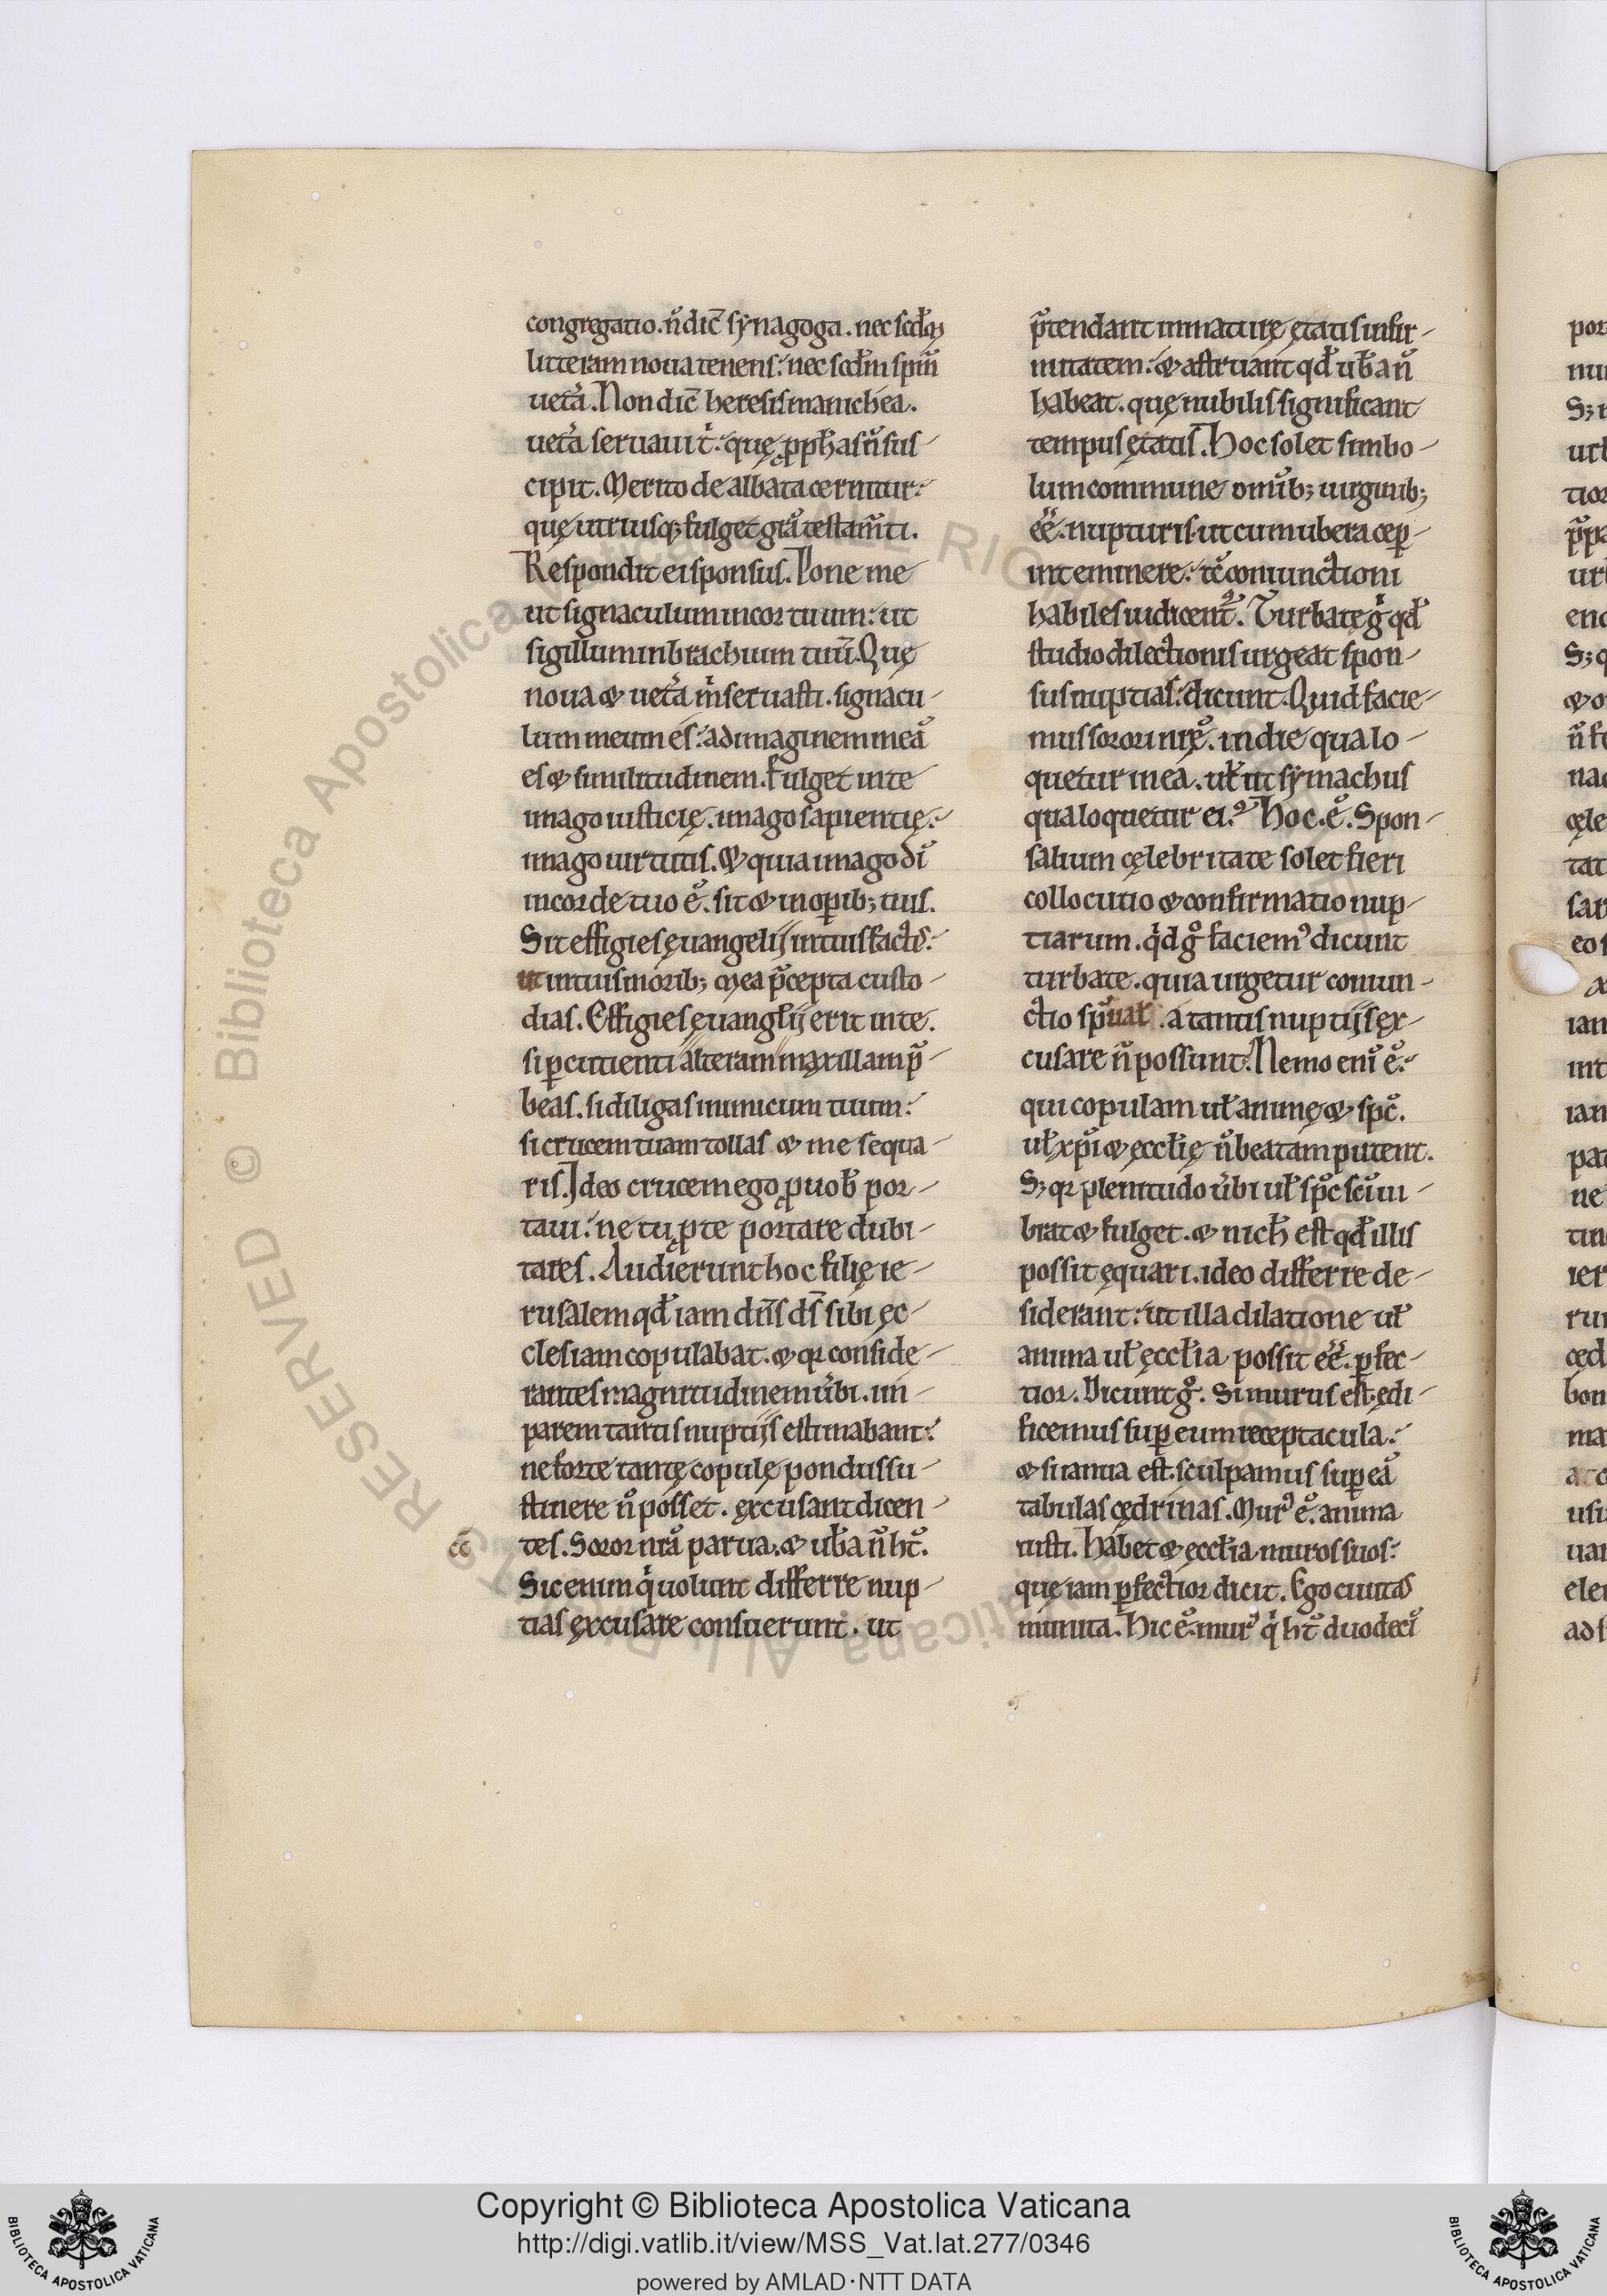 congregatio. n̄ dic̄ synagoga. nec scd̄m
litteram noua tenens: nec scd̄m spm̄
uet̓a. Non dic̄ heresis manichea.
uet̓a seruauit̓: quę ꝓph̄as n̄ sus-
cipit. Merito dealbata cernitur:
quę utriusq; fulget gr̄a testam̄ti.
Respondit ei sponsus. Pone me
ut signaculum in cor tuum: ut
sigillum in brachium tuū. Quę
noua & uet̓a m̓ seruasti. signacu-
lum meum es: ad imaginem meā
es & similitudinem. Fulget in te
imago iusticię. imago sapientię:
imago uirtutis. & quia imago dī
in corde tuo ē. sit & in oꝑib; tuis.
Sit effigies ęuangelij in tuis factis:
ut in tuis morib; mea p̄cepta custo-
dias. Effigies ęuangłij erit in te.
si ꝑcutienti alteram maxillam p̄-
beas. si diligas inimicum tuum:
si crucem tuam tollas & me sequa-
ris. Ideo crucem ego ꝓ uob̄ por-
taui: ne tu ꝓ te portare dubi-
tares. Audierunt hoc filię ie-
rusalem qd̄ iam dn̄s ds̄ sibi ęc-
clesiam copulabat. & qr conside-
rantes magnitudinem u̓bi. im-
parem tantis nuptijs estimabant:
ne forte tantę copulę pondus su-
stinere n̄ posset. ęxcusant dicen-
tes. Soror nr̄a parua. & ub̄a n̄ ht̄.
Sic enim q̓ uolunt differre nup-
tias ęxcusare consuerunt. ut
p̄tendant inmaturę ętatis infir-
mitatem: & astruant qd̄ ub̄a n̄
habeat. quę nubilis significant
tempus ętatis. Hoc solet simbo-
lum commune om̄ib; uirginib;
eē. nupturis. ut cum ubera cep̄
int eminere: tc̄ coniunctioni
habiles iudicent̓. Turbatę g̓ qd̄
studio dilectionis urgeat spon-
sus nuptias: dicunt. Quid facie-
mus sorori nr̄ę. in die qua lo-
quetur in ea. uł ut symachus
qua loquetur ei. Hoc. ē. Spon-
salium cęlebritate solet fieri
collocutio & confirmatio nup-
tiarum. q̓d g̊ faciemꝰ dicunt
turbatę. quia urgetur coniun-
ctio sp̄uał. a tantis nuptijs ęx-
cusare n̄ possunt. Nemo enī ē:
qui copulam uł animę & spc̄.
uł xp̄i & ęccłię n̄ beatam putent.
S; qr plenitudo u̓bi uł spc̄ scī ui-
brat & fulget. & nich̄ est qd̄ illis
possit ęquari. ideo differre de-
siderant: ut illa dilatione uł
anima uł ęccłia possit eē. ꝑfec-
tior. Dicunt g̊. Si murus est. ędi-
ficemus suꝑ eum receptacula:
& si ianua est. sculpamus suꝑ eā
tabulas cędrinas. Murꝰ ē. anima
iusti. Habet & ęccłia muros suos:
quę iam ꝑfectior dicit. Ego ciuitas
munita. Hic ē. murꝰ q̓ ht̄ duodecī
Copyright © Biblioteca Apostolica Vaticana
http://digi.vatlib.it/view/MSS_Vat.lat.277/0346
powered by AMLAD·NTT DATA